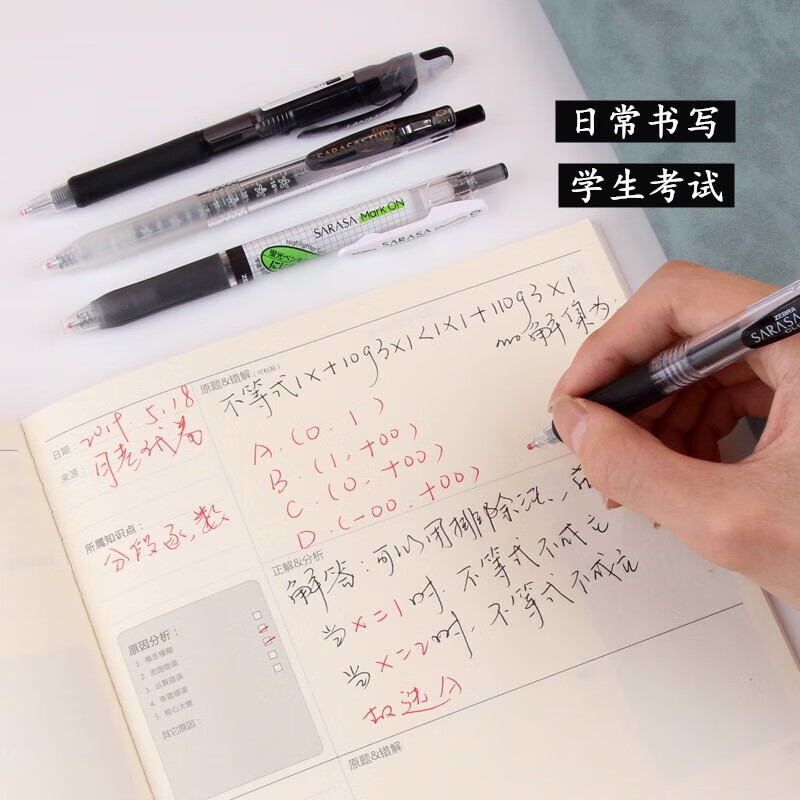 日常书写
学生考试
SARASA STUDY
SARASA Mark ON
SARASA
ZEBRA
SARASA
原题&错解（可粘贴）
不等式|x+1093x|<|x|+|1093x|
的解集为:
日期：2019.5.18
来源：月考试卷
A.(0,1)
B.(1,+∞)
C.(0,+∞)
D.(-∞,+∞)
所属知识点：
分段函数
正解&分析
解答:可以用排除法、
当x=1时,不等式不成立
当x=2时,不等式不成立
故选A
原因分析：
1. 概念模糊
2. 思路错误
3. 运算错误
4. 审题错误
5. 粗心大意
其它原因：
原题&错解